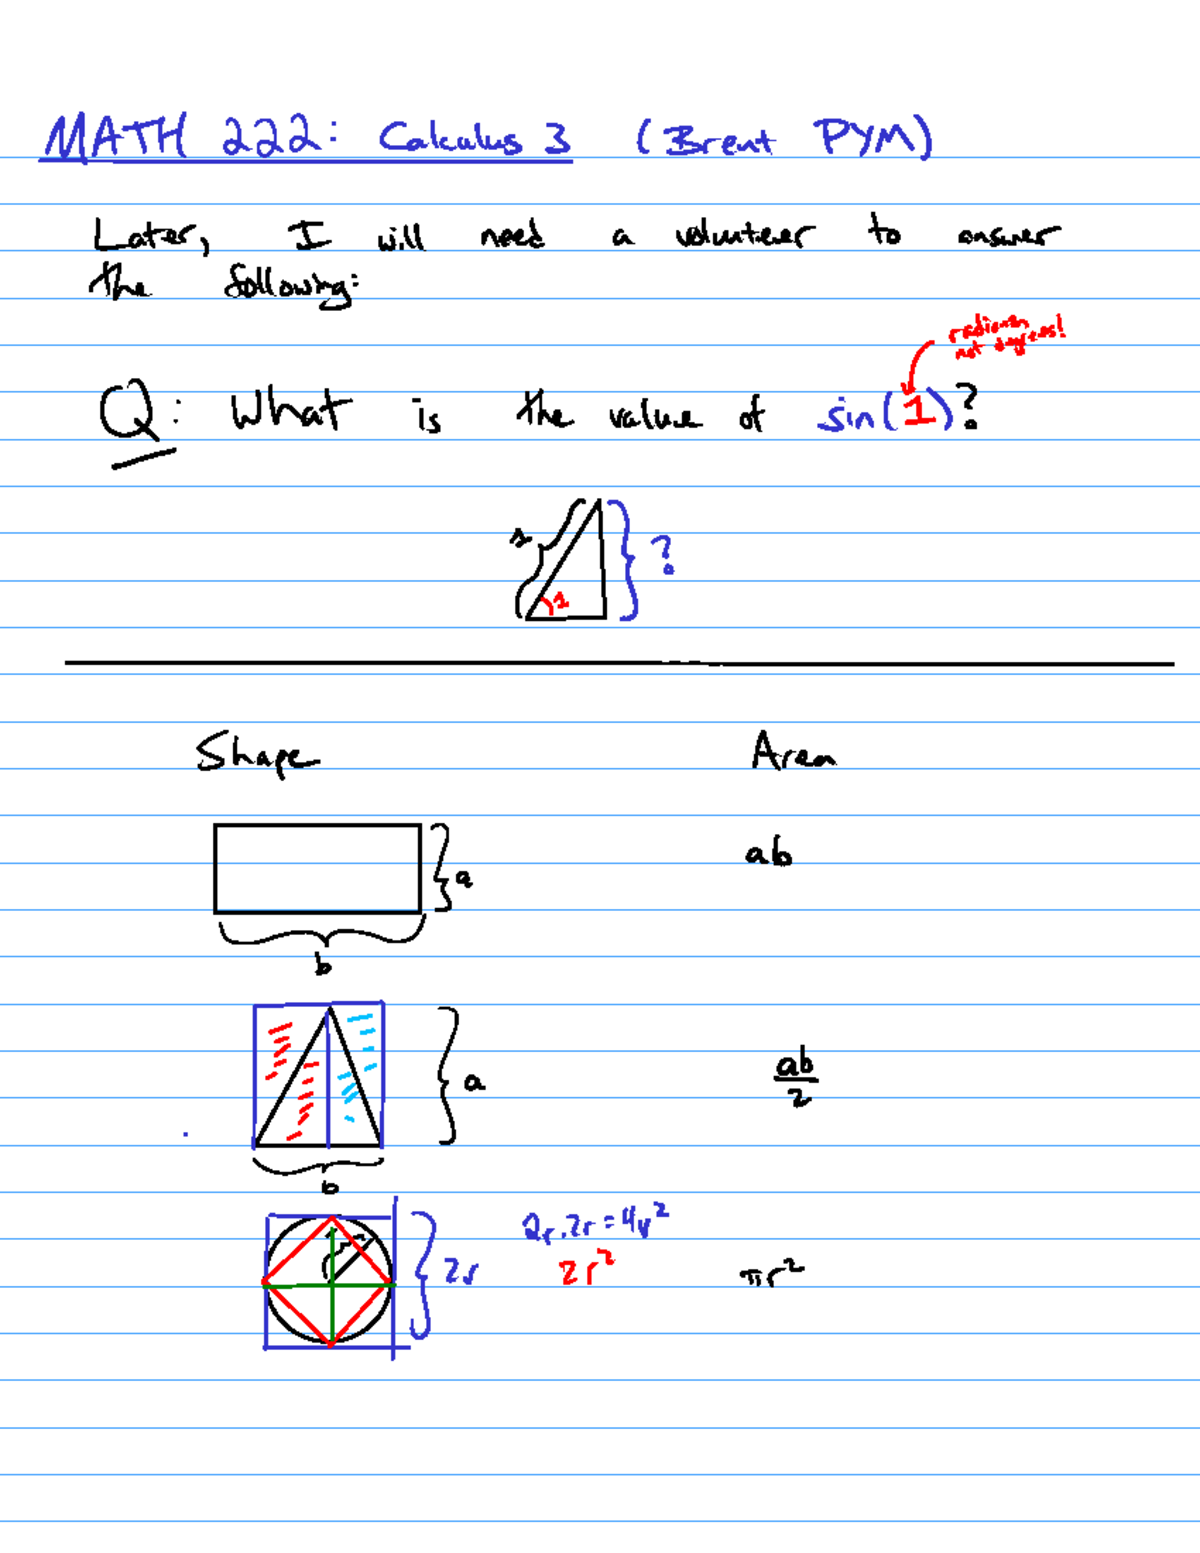 MATH 222: Calculus 3 (Brent PYM)
Later, I will need a volunteer to answer
the following:
radians
not degrees!
Q: What is the value of sin(1)?
1
?
1
Shape Area
ab
a
b
a
ab
2
b
2r.2r=4r²
2r
2r²
πr²
r